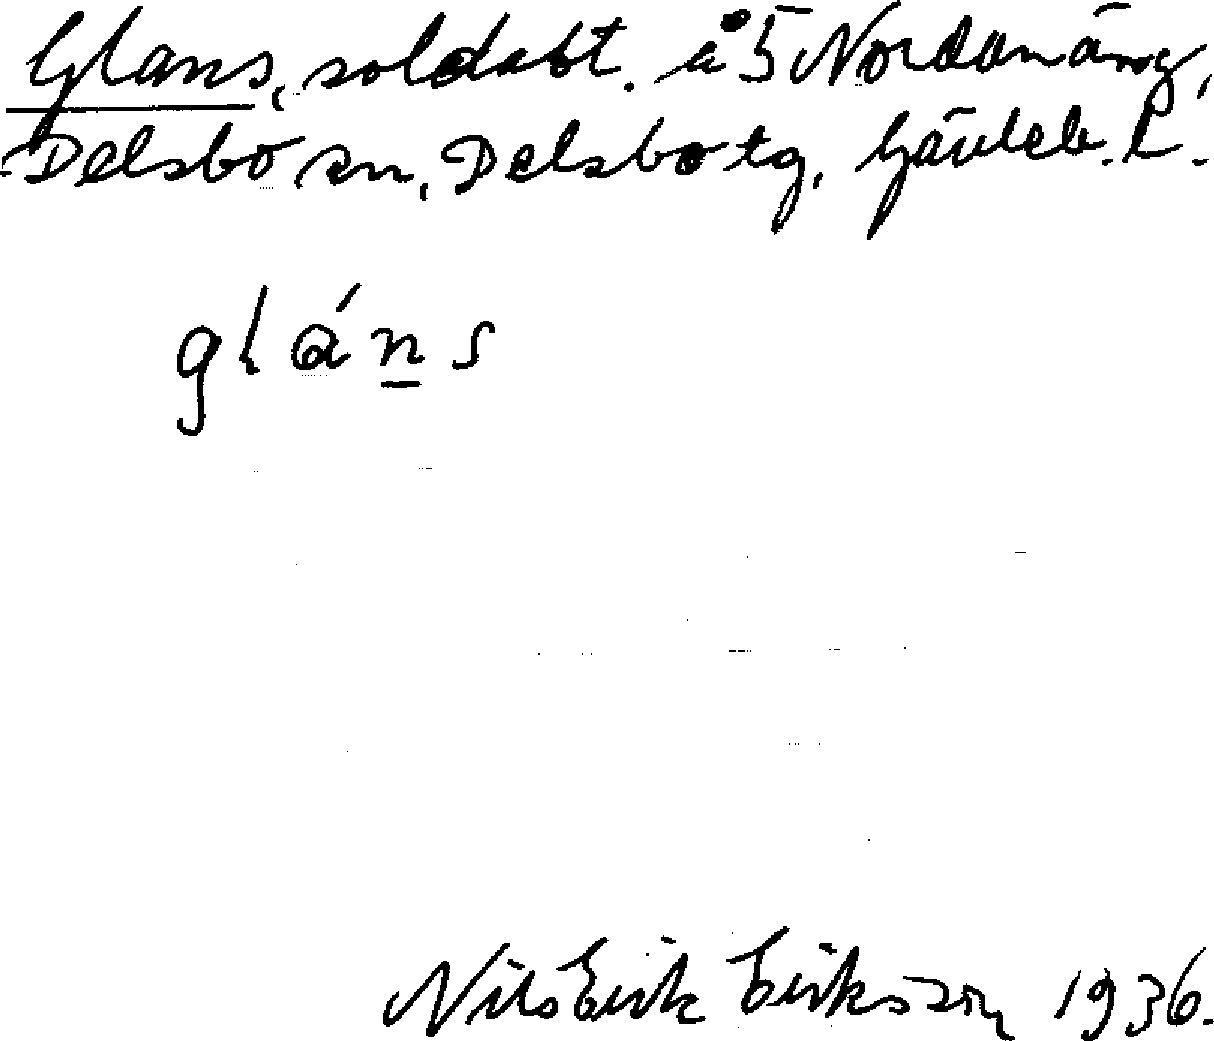 Glans, soldatt. å 5 Nordanäng,
Delsbo sn, Delsbo tg, Gävleb. l.
gláns
Nils Erik Eriksson 1936.